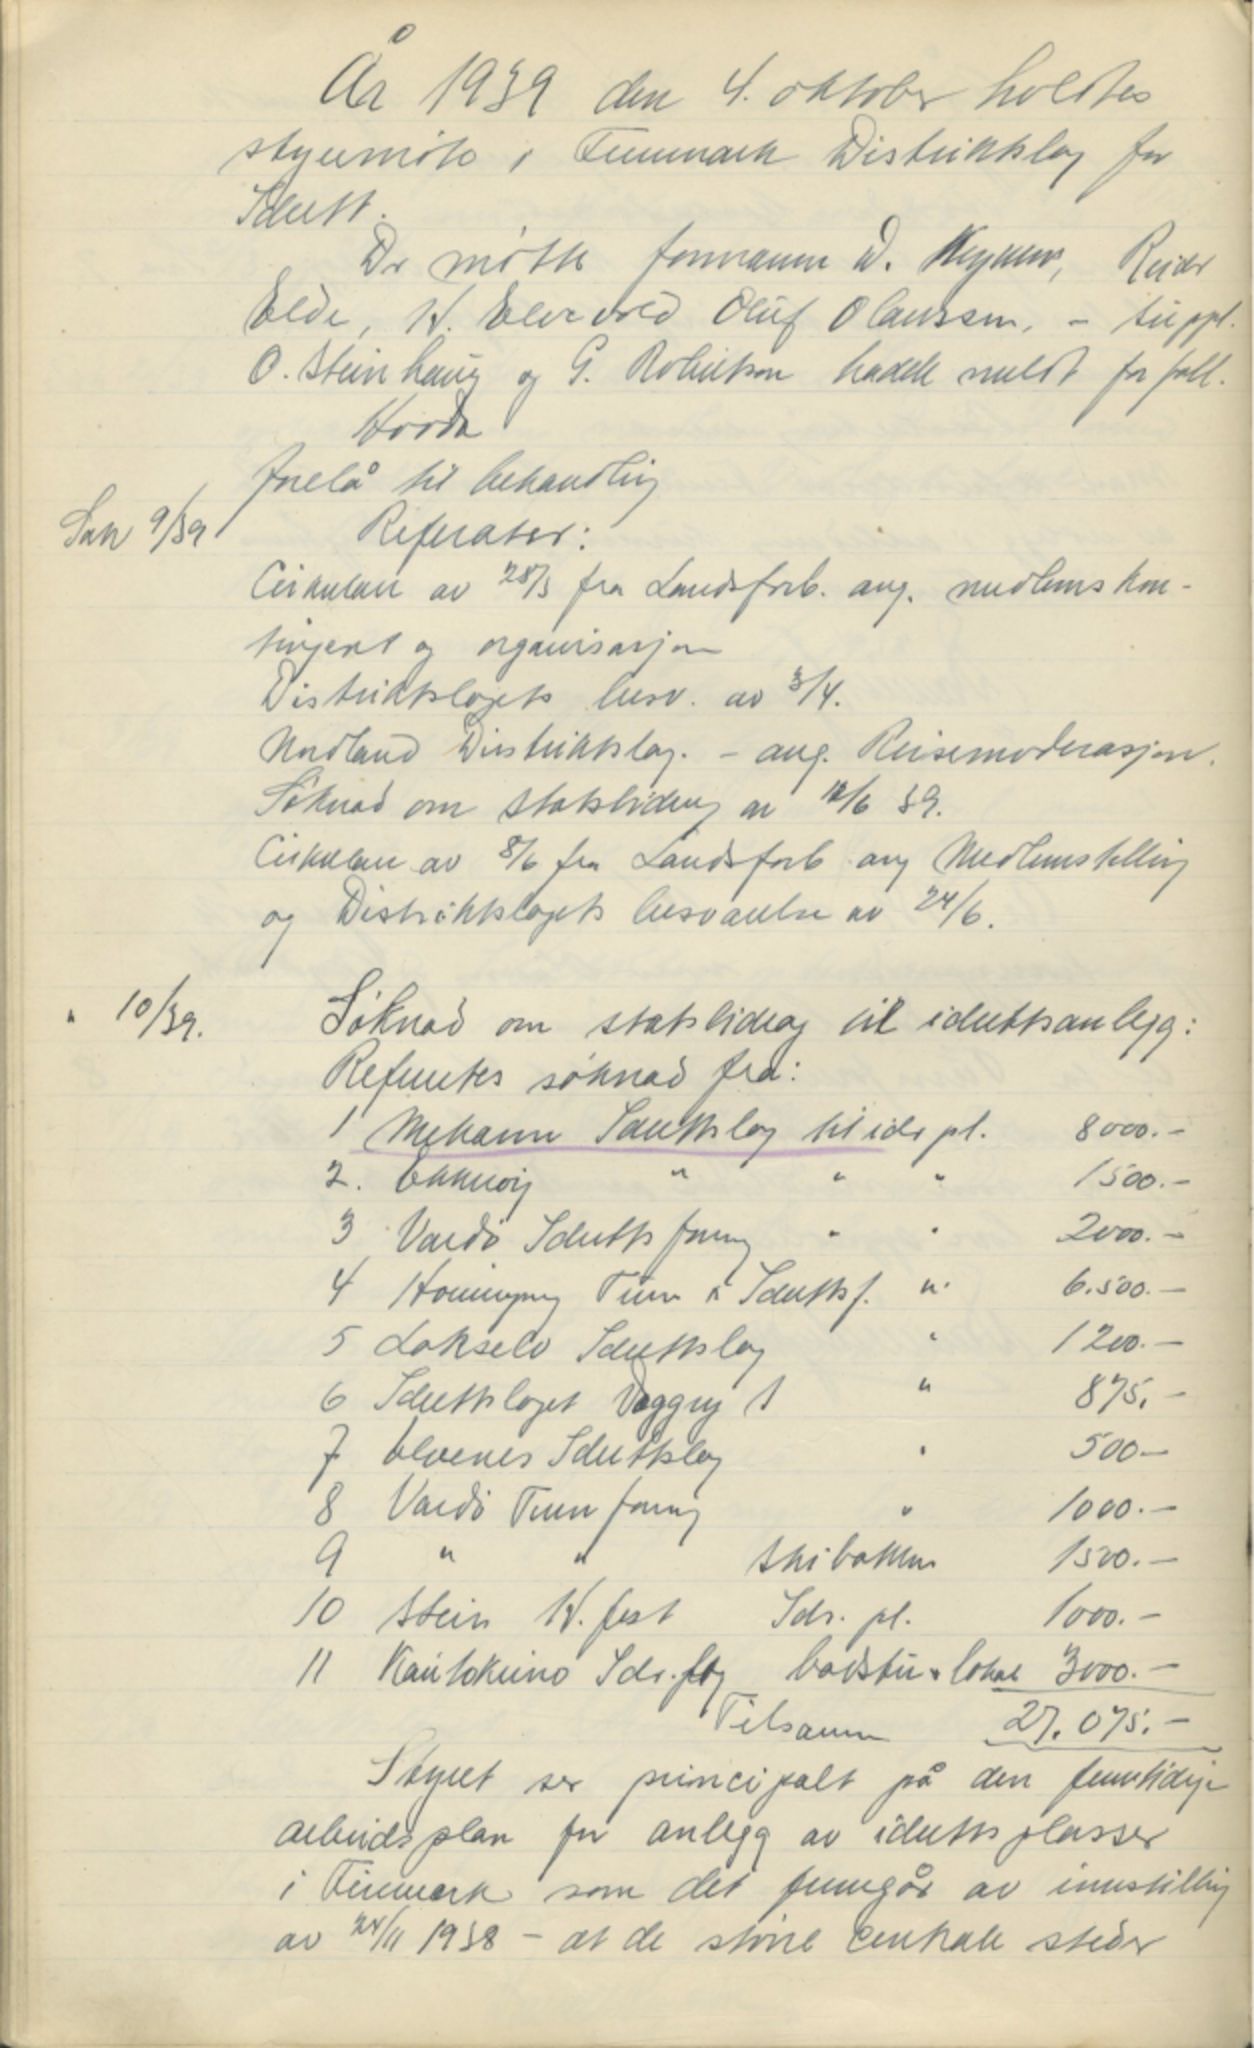 År 1939 den 4. oktober holdtes
styremöte i Finnmark Distriktslag for
Idrett.
Der mötte formann W. Reidar
Elde, H. Elvevold Oluf Olaussen, - suppl.
O. Steinhaug og G. Robertsen hadde meldt forfall.
Forelå til behandling
Sak 9/39 Referater:
Cirkulære av 28/3 fra Landsforb. ang. medlemskon-
tingent og organisasjon
Distriktslagets besv. av 3/4.
Nordland Distriktslag. - ang. Reisemoderasjon.
Söknad om statsbidrag av 12/6 39.
Cirkulære av 8/6 fra Landsforb ang Medlemstelling
og Distriktslagets besvarelse av 24/6.
" 10/39. Söknad om statsbidrag til idrettsanlegg:
Refertes söknad fra:
1 Mehamn Idrettslag til idr pl. 8000.-
2. Ekkeröy " " " 1500.-
3 Vardö Idretts foreng " " 2000.-
4 Honningsvåg Turn & Idrettsf. " 6.500.-
5 Lakselv Idrettslag " 1200.-
6 Idrettslaget " 875.-
7 Elvenes Idrettslag " 500-
8 Vardö Turn foreng " 1000.-
9 " " Skibakken 1500.-
10 Stein H.fest Idr. pl. 1000.-
11 Kautokeino Idr.lag badstu & lokal 3000.-
Tilsamm 27.075.-
Styret ser principalt på den fremtidige
arbeidsplan for anlegg av idrettsplasser
i Finnmark som det fremgår av innstilling
av 24/11 1938 - at de större centrale steder